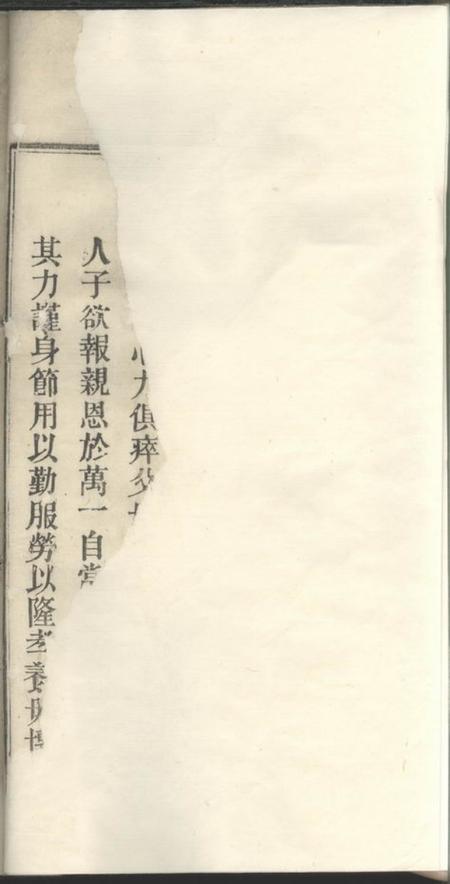 力俱瘁父
人子欲報親恩於萬一自當
其力謹身節用以勤服勞以隆孝養毋博